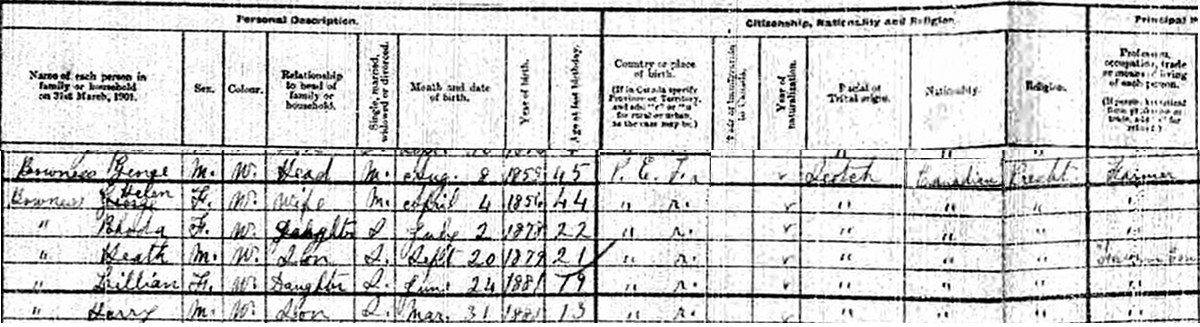 Personal Description. Citizenship, Nationality and Religion Principal
Name of each person in family or household on 31st March, 1901. Sex. Colour. Relationship to head of family or household. Single, married, widowed or divorced. Month and date of birth. Year of birth. Age at last birthday. Country or place of birth. (If in Canada specify Province or Territory, and add "r" or "u" for rural or urban, as the case may be.) Year of immigration to Canada. Year of naturalization. Racial or Tribal origin. Nationality. Religion. Profession, occupation, trade or means of living of each person.
" " "
Bowness George M. W. Head M. Aug. 8 45 P. E. I. r Scotch Canadian Presbt Farmer
Bowness Helen F. W. Wife M. April 4 1856 44 " r. " " " "
" Rhoda F. W. Daughter S. July 2 1878 22 " r. " " "
" Heath M. W. Son S. Sept 20 1879 21 " r. " " "
" Lillian F. W. Daughter S. June 24 1881 19 " r. " " " "
" Harry M. W. Son S. Mar. 31 13 " r. " " " "